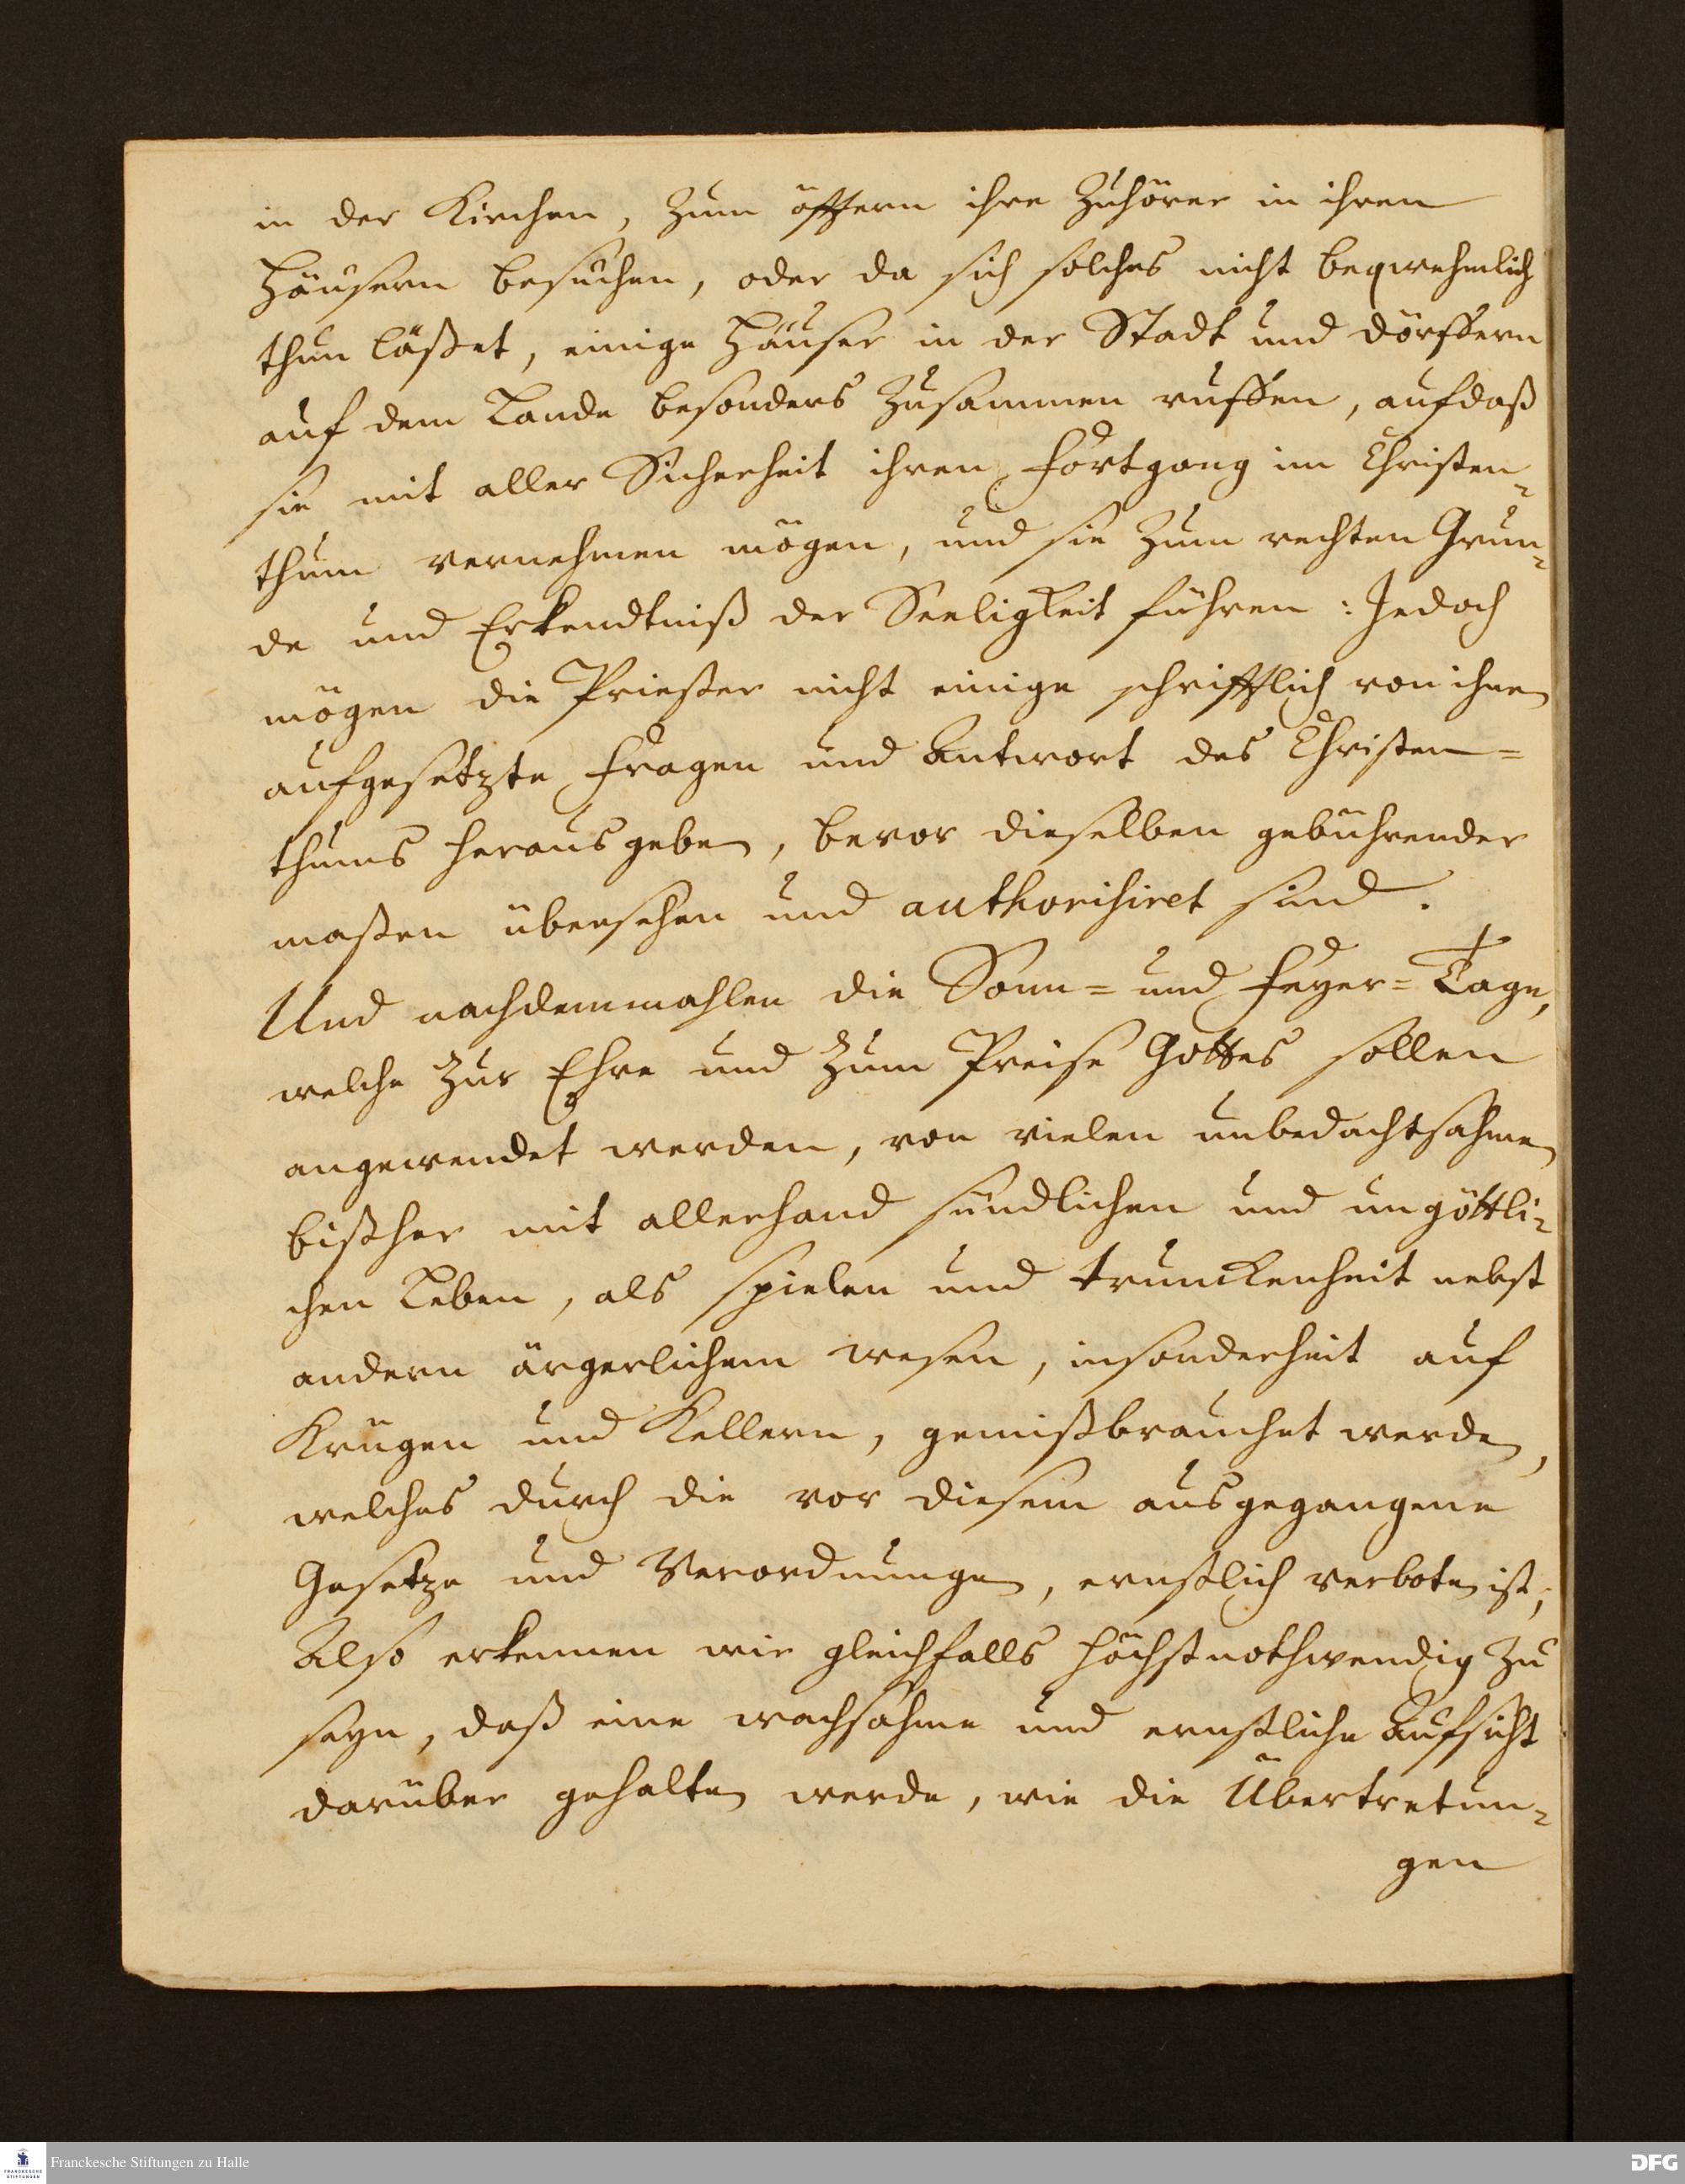 in der Kirchen, zum öfftern ihre Zuhörer in ihren
Häusern besuchen, oder da sich solches nicht beqwehmlich
thun läßet, einige Häuser in der Stadt und dörffern
auf dem Lande besonders zusammen ruffen, aufdaß
sie mit aller Sicherheit ihren fortgang im Christen-
thum vernehmen mögen, und sie zum rechten Grun-
de und Erkendtniß der Seeligkeit führen: Jedoch
mögen die Priester nicht einige schrifftlich von ihnen
aufgesetzte Fragen und Antwort des Christen=
thums herausgeben, bevor dieselben gebührender
maßen übersehen und authorisiret sind.
Und nachdemmahlen die Sonn= und Feyer=Tage,
welche zur Ehre und zum Preise Gottes sollen
angewendet werden, von vielen unbedachtsahmen
bißher mit allerhand sündlichen und ungöttli-
chen Leben, als spielen und trunckenheit nebst
andern ärgerlichem wesen, insonderheit auf
Krügen und Kellern, gemißbrauchet werden,
welches durch die vor diesem ausgegangene
Gesetze und Verordnungen, ernstlich verboten ist;
Also erkennen wir gleichfalls höchstnothwendig zu
seyn, daß eine wachsahme und ernstliche Aufsicht
darüber gehalten werde, wie die Übertretun-
gen
Franckesche Stiftungen zu Halle
FRANCKESCHE STIFTUNGEN
DFG